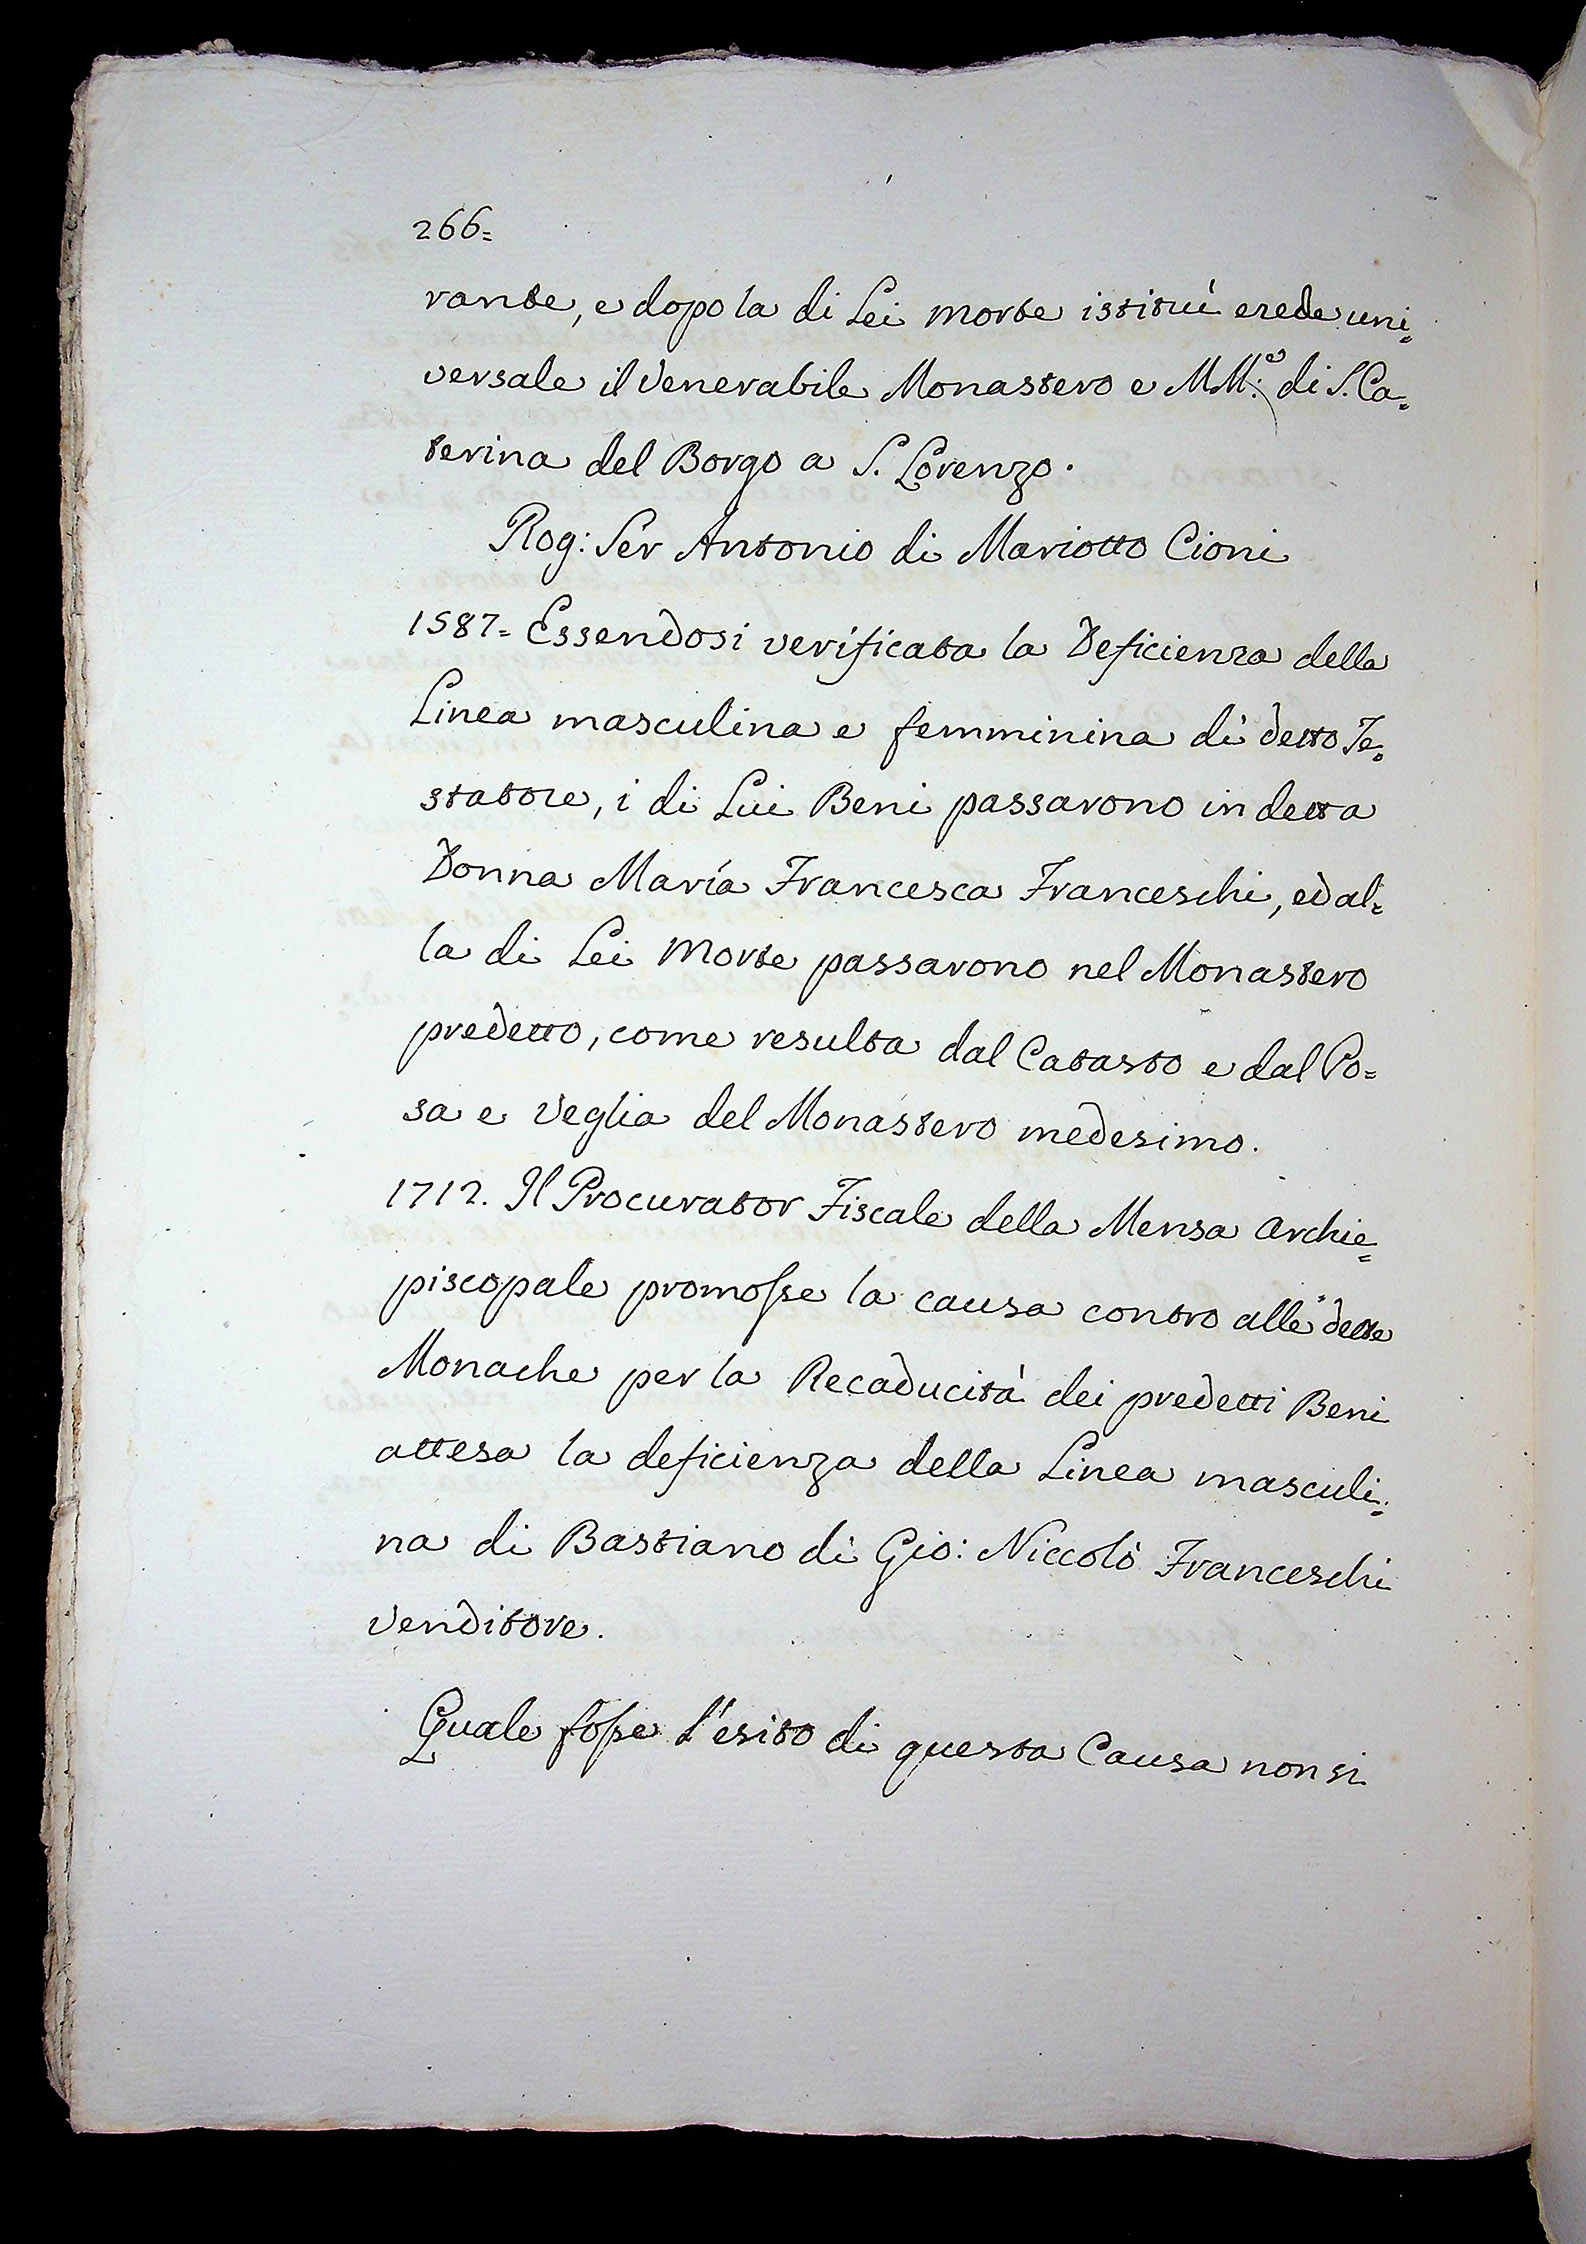 266=
rante, e dopo la di Lei morte istituì erede uni=
versale il Venerabile Monastero e MM:e di S. Ca=
terina del Borgo a S. Lorenzo.
Rog: Ser Antonio di Mariotto Cioni
1587= Essendosi verificata la Deficienza della
Linea masculina e femminina di detto Te=
statore, i di Lui Beni passarono in detta
Donna María Francesca Franceschi, ed al=
la di Lei Morte passarono nel Monastero
predetto, come resulta dal Catasto e dal Po=
sa e Veglia del Monastero medesimo.
1712. Il Procurator Fiscale della Mensa Archie=
piscopale promosse la causa contro alle dette
Monache per la Recaducità dei predetti Beni
attesa la deficienza della Linea masculi=
na di Bastiano di Gio: Niccolò Franceschi
Venditore.
Quale fosse l'esito di questa Causa non si